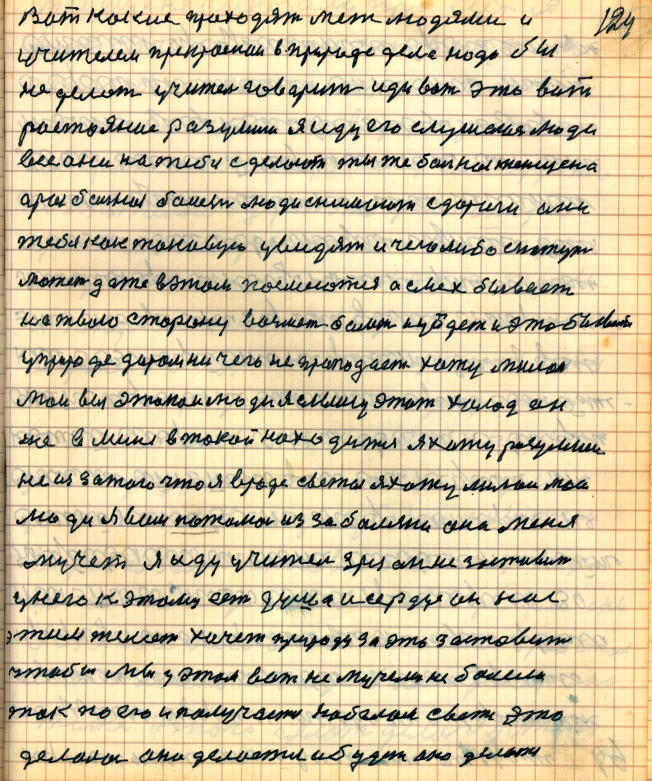 124
Вот какие проходят меж людями и
учителем прекрасная в природе дела надо бы
не делат учител говорит иди вот это вот
растояние разумом я иду его слушаюся люди
все они на тебя сделают ты же болная женщена
а раз болная болеет люди снимают сдароги они
тебя как таковую увидят и чего либо скажут
может даже вэтом посмеются а смех бывает
на твою сторону возмет болет и уйдет и это бывает
уприроде даром ни чего не пропадает хажу милои
маи вы этакаи люди я слышу этот холод он
же в мине втакой находится я хажу разумом
не из за того что я вроде светы я хажу милаи маи
люди я вам патамаи из за болячи она меня
мучет я иду учител зря он не заставит
унего к этому ест душа и сердце он нас
этим тешет хочет природу за это заставит
чтобы мы у этом вот не мучели не болели
так по его и получаетя набелом свети это
делалаи ано делаетя и будет ано делат